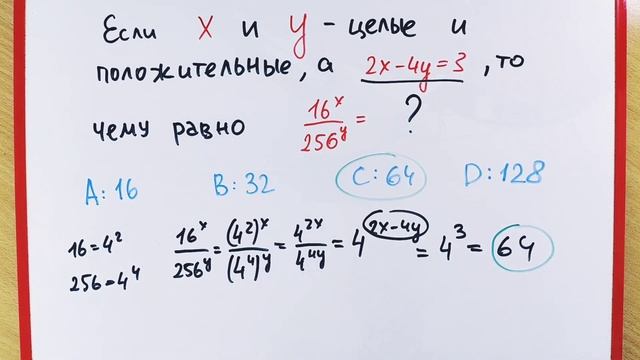 Если x и y - целые и
положительные, а 2x-4y=3, то
чему равно 16^x/256^y = ?
A: 16 B: 32 C: 64 D: 128
16=4²
256=4⁴
16^x/256^y = (4²)^x/(4⁴)^y = 4^2x/4^4y = 4^2x-4y = 4³ = 64